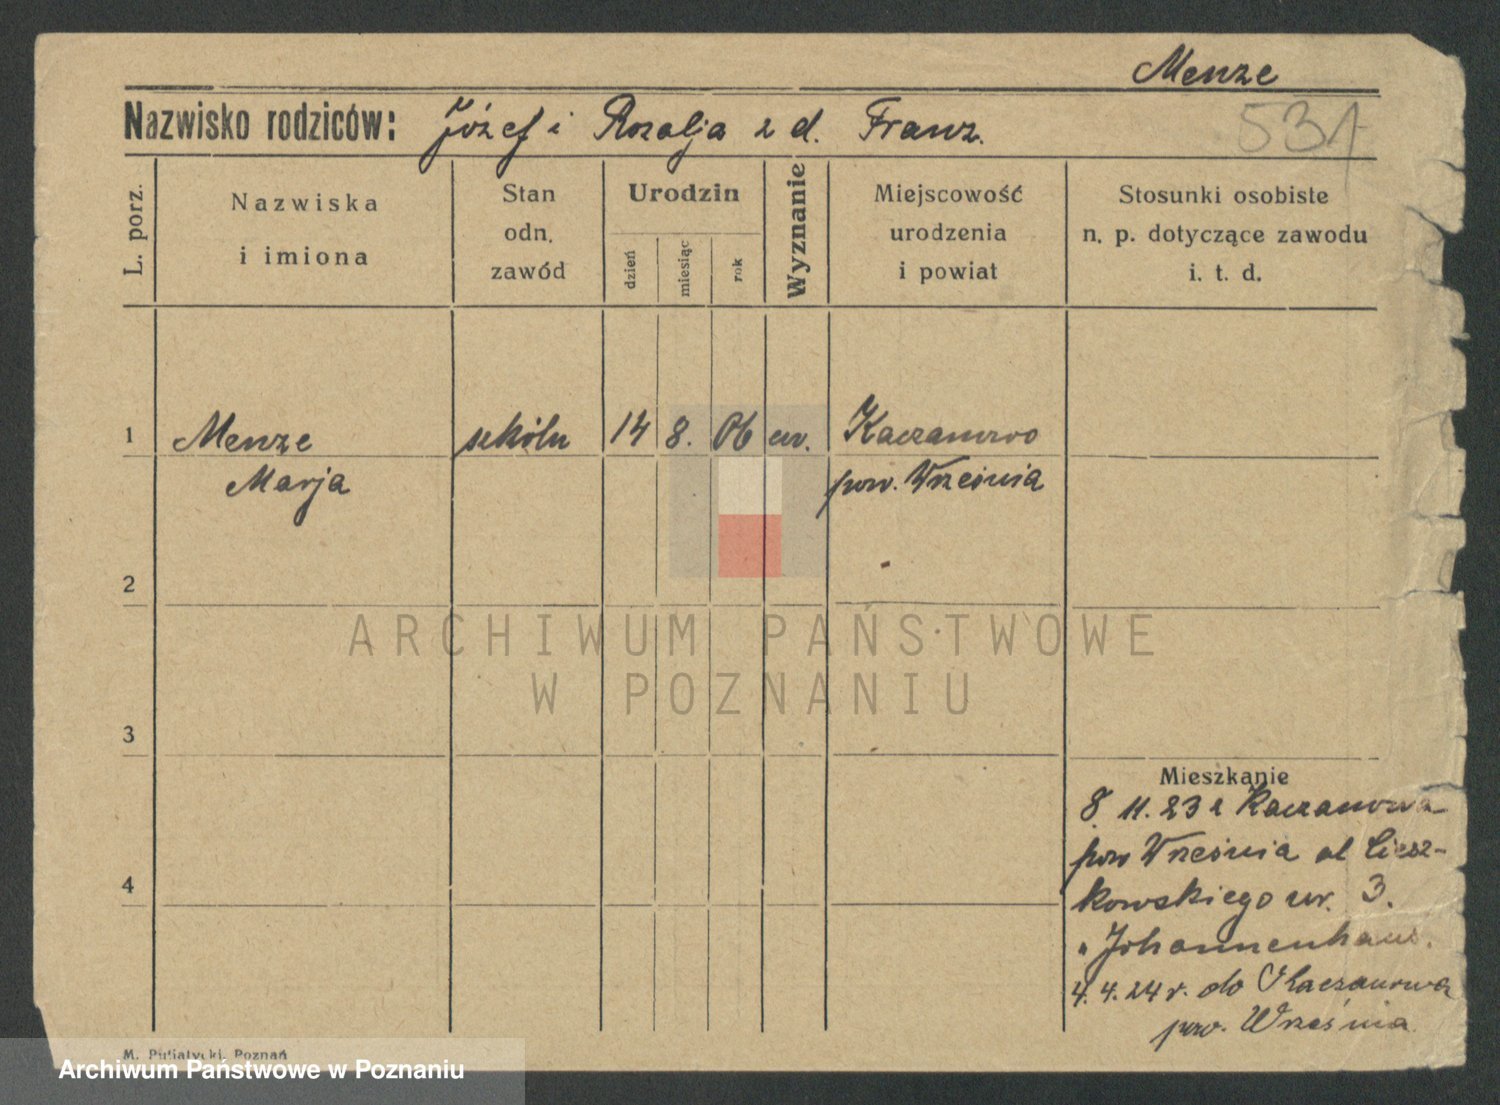 Menze
531
Nazwisko rodziców: Józef i Rozalja z d. Franz.
L. porz.
Nazwiska
i imiona
Stan
odn.
zawód
Urodzin
dzień
miesiąc
rok
Wyznanie
Miejscowość
urodzenia
i powiat
Stosunki osobiste
n. p. dotyczące zawodu
i. t. d.
1 Menze 14 8. 06 ew. Kaczanowo
Marja pow. Września
2
ARCHIWUM PAŃSTWOWE
W POZNANIU
3
Mieszkanie
8. 11. 23 z Kaczanowa
pow Września
4
kowskiego nr. 3.
"Johannenhaus.
4. 4. 24 r. do Kaczanowa
pow. Września
M. Putiatycki, Poznań
Archiwum Państwowe w Poznaniu